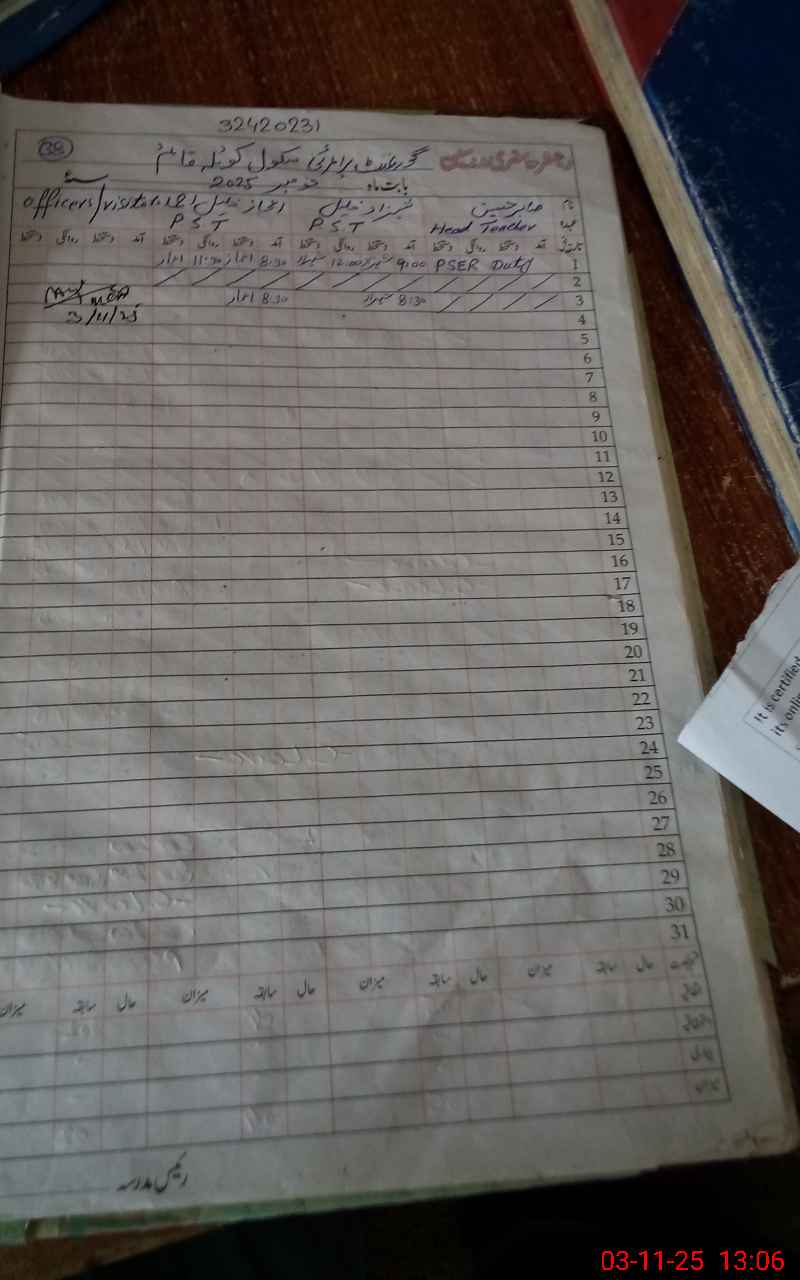 32420231
38 گورنمنٹ پرائمری سکول کوٹلہ قائم رجسٹر حاضری مدرسین
بابت ماہ نومبر 2025 سنہ
نام صابر حسین شہزاد خلیل اعجاز خلیل officers/visitors
عہدہ Head Teacher PST PST
تاریخ آمد دستخط روانگی دستخط آمد دستخط روانگی دستخط آمد دستخط روانگی دستخط آمد دستخط روانگی دستخط
1 PSER Duty 9:00 شہزاد 12:00 شہزاد 8:30 اعجاز 11:30 اعجاز
2
3 8:30 شہزاد 8:30 اعجاز MEA
3/11/25
4
5
6
7
8
9
10
11
12
13
14
15
16
17
18
19
20
21
22
23
24
25
26
27
28
29
30
31
حال سابقہ میزان حال سابقہ میزان حال سابقہ میزان حال سابقہ میزان
اتفاقیہ
بیماری
میزان
رئیس مدرسہ
It is certified
its onli
03-11-25 13:06